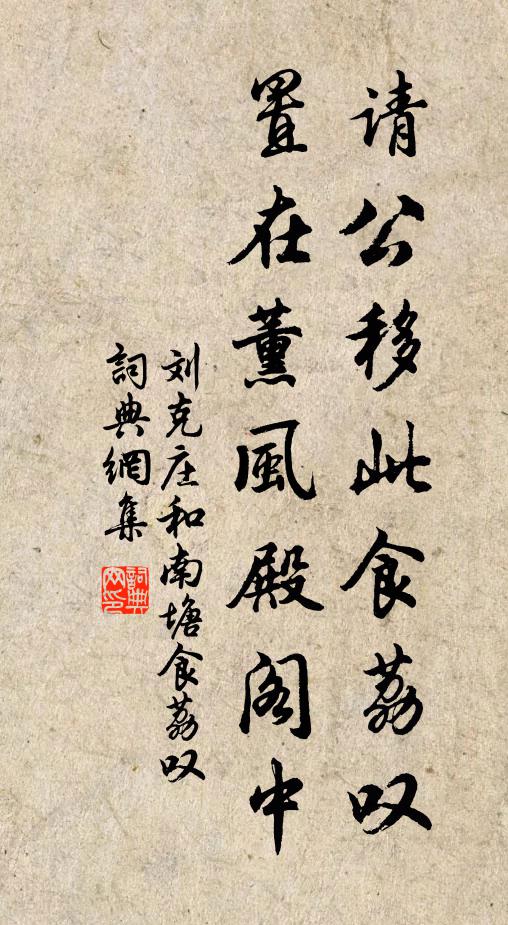 请公移此食荔叹
置在薰風殿阁中
刘克庄和南塘食荔叹
詞典網集
詞典网印